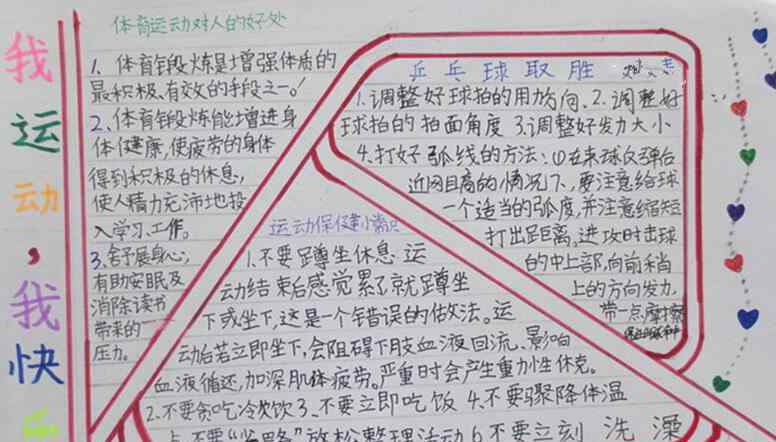 我运动，我快乐
体育运动对人的好处
1、体育锻炼是增强体质的
最积极、有效的手段之一。！
2、体育锻炼能增进身
体健康,使疲劳的身体
得到积极的休息,
使人精力充沛地投
入学习、工作。
3、舒展身心,
有助安眠及
消除读书
带来的
压力。
乒乓球取胜
1.调整好球拍的用力方向、2.调整好
球拍的拍面角度 3.调整好发力大小
4.打好弧线的方法:①在来球仅弹台
近网且高的情况下,要注意给球
一个适当的弧度,并注意缩短
打出距离,进攻时击球
的中上部,向前稍
上的方向发力,
带一点摩擦
运动保健小常识
1.不要蹲坐休息 运
动结束后感觉累了就蹲坐
下或坐下,这是一个错误的做法。运
动后若立即坐下,会阻碍下肢血液回流、影响
血液循还,加深肌体疲劳。严重时会产生重力性休克。
2.不要贪吃冷饮 3.不要立即吃饭 4.不要骤降体温
5.不要“省略”放松整理活动 6.不要立刻洗澡